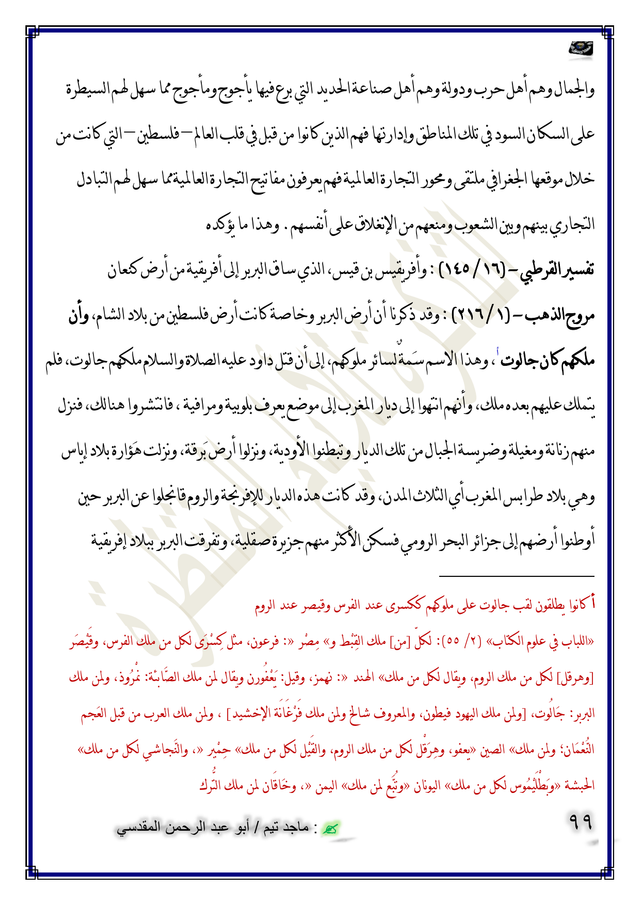 والجمال وهم أهل حرب ودولة وهم أهل صناعة الحديد التي برع فيها يأجوج ومأجوج مما سهل لهم السيطرة
على السكان السود في تلك المناطق وإدارتها فهم الذين كانوا من قبل في قلب العالم – فلسطين – التي كانت من
خلال موقعها الجغرافي ملتقى ومحور التجارة العالمية فهم يعرفون مفاتيح التجارة العالمية مما سهل لهم التبادل
التجاري بينهم وبين الشعوب ومنعهم من الإنغلاق على أنفسهم . وهذا ما يؤكده
تفسير القرطبي – (١٦/ ١٤٥) : وأفريقيس بن قيس، الذي ساق البربر إلى أفريقية من أرض كنعان
مروج الذهب – (١/ ٢١٦) : وقد ذكرنا أن أرض البربر وخاصة كانت أرض فلسطين من بلاد الشام، وأن
ملكهم كان جالوت أ ، وهذا الاسم سَمةٌ لسائر ملوكهم، إلى أن قتل داود عليه الصلاة والسلام ملكهم جالوت، فلم
يتملك عليهم بعده ملك، وأنهم انتهوا إلى ديار المغرب إلى موضع يعرف بلوبية ومراقية ، فانتشروا هنالك، فنزل
منهم زناتة ومغيلة وضريسة الجبال من تلك الديار وتبطنوا الأودية، ونزلوا أرض بَرقة، ونزلت هَوّارة بلاد إياس
وهي بلاد طرابس المغرب أي الثلاث المدن، وقد كانت هذه الديار للإفرنجة والروم فانجلوا عن البربر حين
أوطنوا أرضهم إلى جزائر البحر الرومي فسكن الأكثر منهم جزيرة صقلية، وتفرقت البربر ببلاد إفريقية
أ كانوا يطلقون لقب جالوت على ملوكهم ككسرى عند الفرس وقيصر عند الروم
«اللباب في علوم الكتاب» (٢/ ٥٥): لكلّ [من] ملك القِبْط و» مِصْر «: فرعون، مثل كِسْرَى لكل من ملك الفرس، وقَيْصَر
[وهرقل] لكل من ملك الروم، ويقال لكل من ملك» الهند «: نهمز، وقيل: يَعْفُورن ويقال لمن ملك الصَّابئة: نَمْرُوذ، ولمن ملك
البربر: جَالُوت، [ولمن ملك اليهود فيطون، والمعروف شالخ ولمن ملك فَرْغَانَة الإخشيد] ، ولمن ملك العرب من قبل العَجم
النُّعْمَان؛ ولمن ملك» الصين «يعفو، وهِرَقْل لكل من ملك الروم، والقَيْل لكل من ملك» حِمْير «، والنَجاشي لكل من ملك»
الحبشة «وبَطْلَيْمُوس لكل من ملك» اليونان «وتُبَّع لمن ملك» اليمن «، وخَاقَان لمن ملك التُّرك
: ماجد تيم / أبو عبد الرحمن المقدسي
٩٩